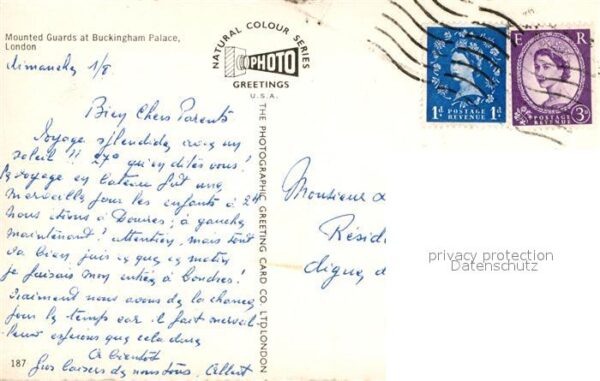 Mounted Guards at Buckingham Palace,
London
dimanche 1/8
NATURAL COLOUR SERIES
PHOTO
GREETINGS
U.S.A.
THE PHOTOGRAPHIC GREETING CARD CO. LTD LONDON
Bien Chers Parents
Voyage splendide avec un
soleil !! 27° qu'en dites vous !
Le voyage en bateau fut une
merveille pour les enfants à 2h
nous étions à Douvres ; à gauche
maintenant ! Attention, mais tout
va bien, puis ce matin
je faisais mon entrée à Londres !
vraiment nous avons de la chance
pour le temps car il fait merveil-
leux espérons que cela dure
A bientôt
Gros baisers de nous tous. Albert
187
1d POSTAGE REVENUE 1d
E R
POSTAGE REVENUE 3d
Monsieur
Réside
digue
privacy protection
Datenschutz